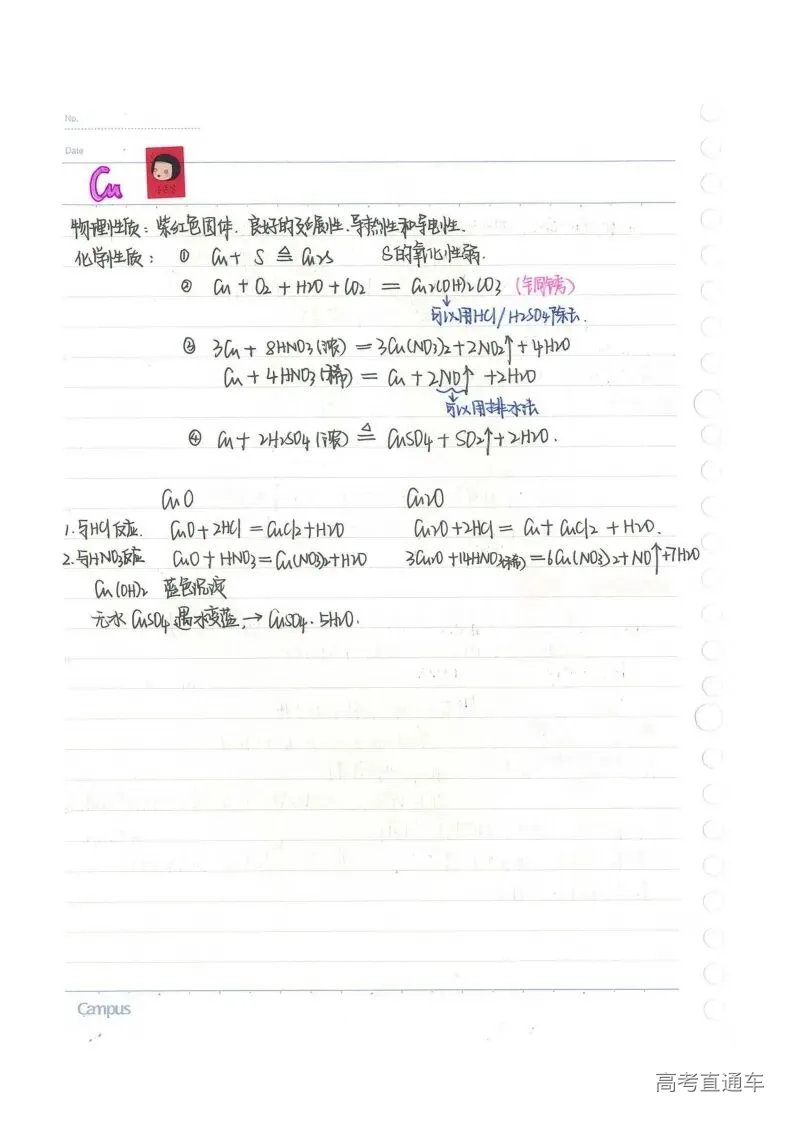 No.
Date
Cu
物理性质：紫红色固体．良好的延展性．导热性和导电性．
化学性质：① Cu + S ≜ Cu2S　S的氧化性弱．
② Cu + O2 + H2O + CO2 = Cu2(OH)2CO3 (铜锈)
↓
可以用HCl/H2SO4除去．
③ 3Cu + 8HNO3(浓) = 3Cu(NO3)2 + 2NO2↑ + 4H2O
Cu + 4HNO3(稀) = Cu + 2NO↑ + 2H2O
↓
可以用排水法
④ Cu + 2H2SO4(浓) ≜ CuSO4 + SO2↑ + 2H2O．
CuO　Cu2O
1. 与HCl反应．CuO + 2HCl = CuCl2 + H2O　Cu2O + 2HCl = Cu + CuCl2 + H2O．
2. 与HNO3反应　CuO + HNO3 = Cu(NO3)2 + H2O　3Cu2O + 14HNO3(稀) = 6Cu(NO3)2 + NO↑ + 7H2O
Cu(OH)2 蓝色沉淀
无水CuSO4遇水变蓝，→ CuSO4·5H2O．
Campus
高考直通车